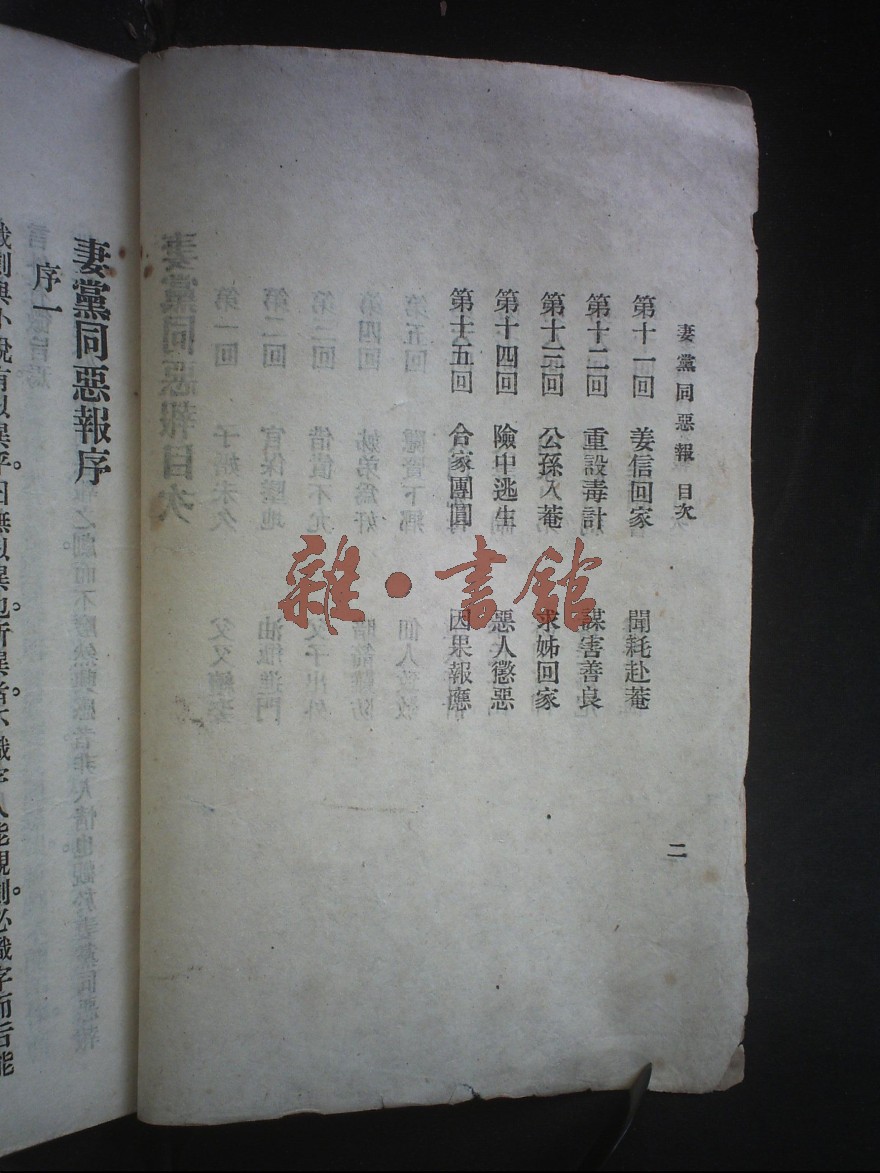 妻黨同惡報 目次
第十一回 姜信回家 聞耗赴菴
第十二回 重設毒計 謀害善良
第十三回 公孫入菴 求姊回家
第十四回 險中逃生 惡人懲惡
第十五回 合家團圓 因果報應
二
雜·書館
妻黨同惡報序
序一
戲劇與小說有以異乎。曰無以異也。所異者。不識字人能觀劇。必識字而后能